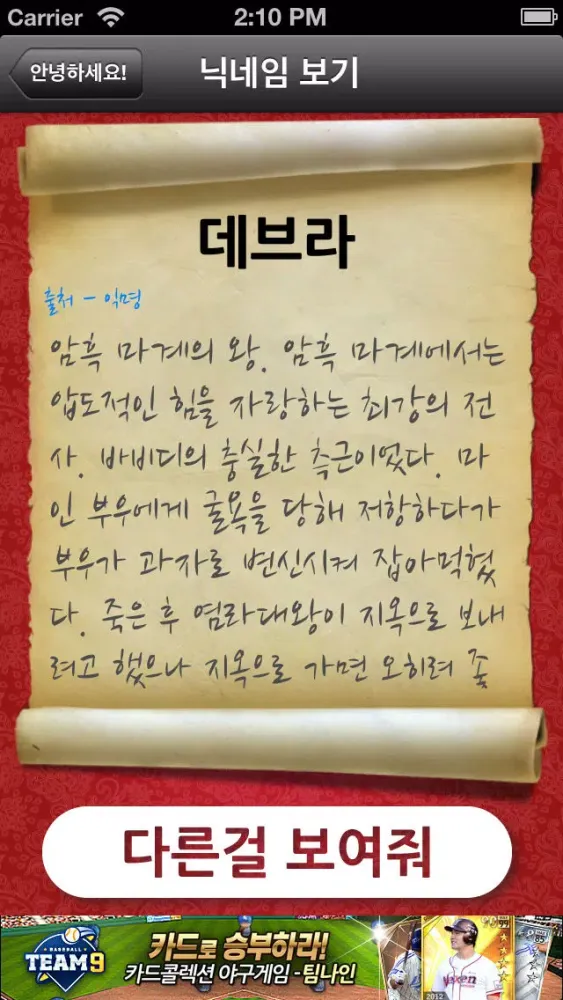 Carrier 2:10 PM
안녕하세요!
닉네임 보기
데브라
출처 - 익명
암흑 마계의 왕. 암흑 마계에서는
압도적인 힘을 자랑하는 최강의 전
사. 바비디의 충실한 측근이었다. 마
인 부우에게 굴욕을 당해 저항하다가
부우가 과자로 변신시켜 잡아먹혔
다. 죽은 후 염라대왕이 지옥으로 보내
려고 했으나 지옥으로 가면 오히려 좋
다른걸 보여줘
BASEBALL
TEAM9
카드로 승부하라!
카드콜렉션 야구게임 - 팀나인
2012